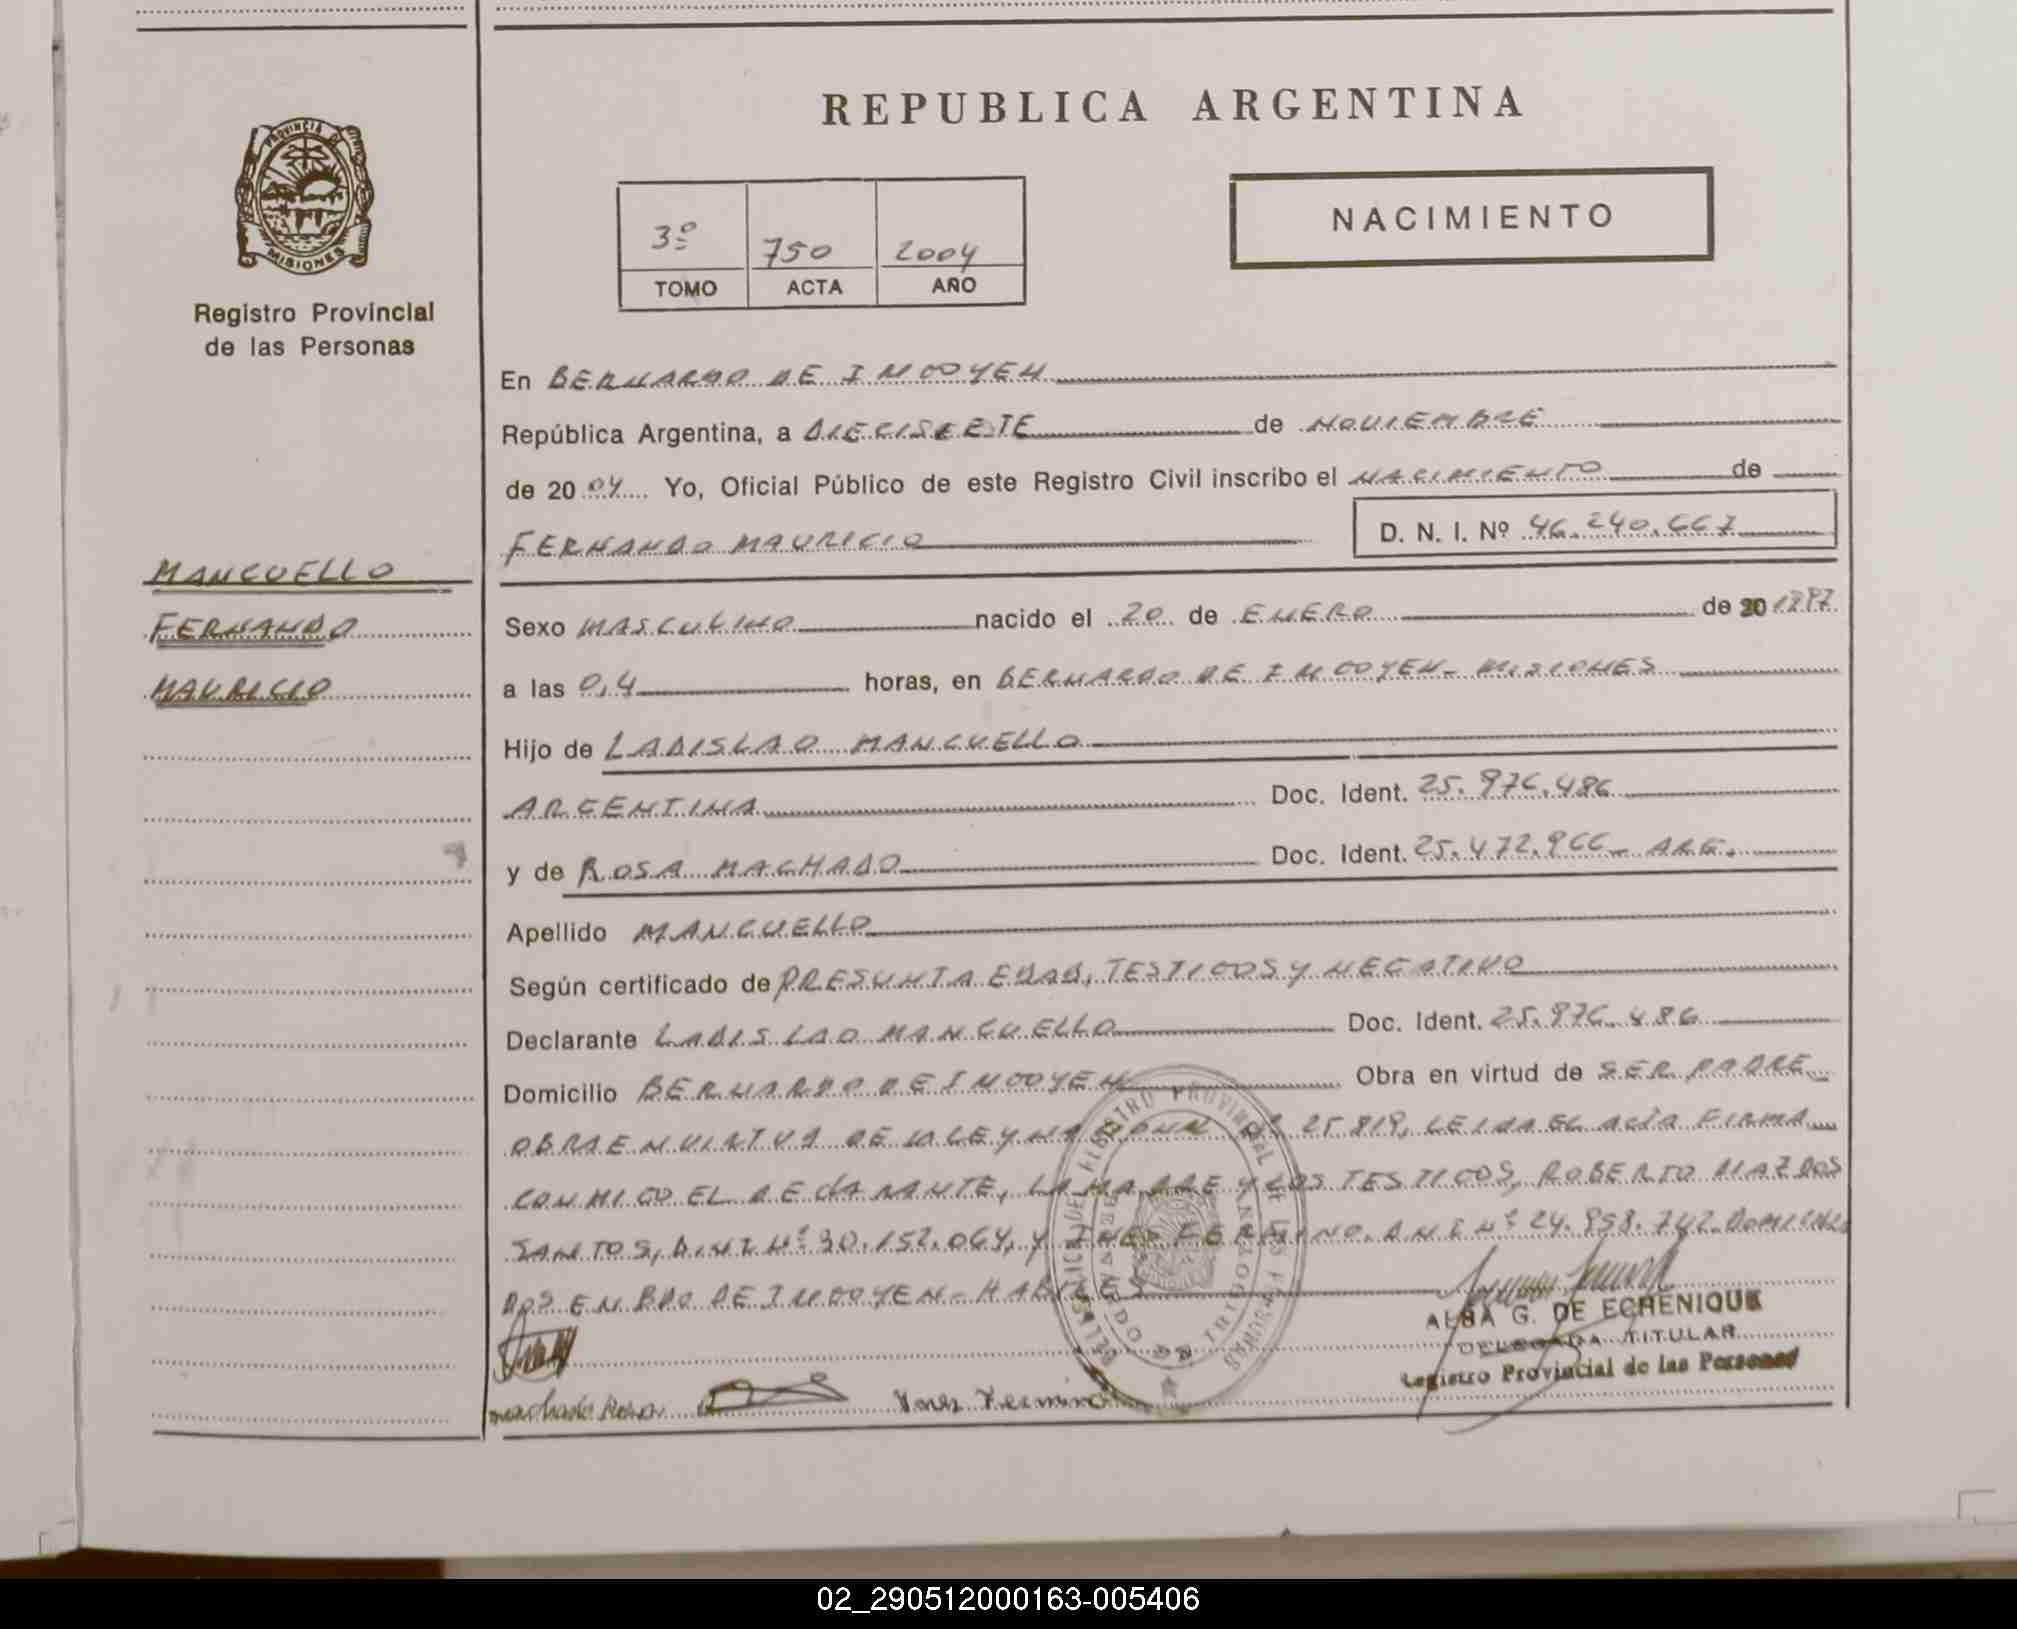 REPUBLICA ARGENTINA
PROVINCIA DE
MISIONES
Registro Provincial
de las Personas
3º 750 2004
TOMO ACTA AÑO
NACIMIENTO
En BERNARDO DE IRIGOYEN
República Argentina, a DIECISIETE de NOVIEMBRE
de 20 04 Yo, Oficial Público de este Registro Civil inscribo el NACIMIENTO de
FERNANDO MAURICIO D. N. I. Nº 46.240.667
MANCUELLO
FERNANDO
MAURICIO
Sexo MASCULINO nacido el 20 de ENERO de 20 1997
a las 0,4 horas, en BERNARDO DE IRIGOYEN - MISIONES
Hijo de LADISLAO MANCUELLO
ARGENTINA Doc. Ident. 25.976.486
y de ROSA MACHADO Doc. Ident. 25.472.966 - ARG.
Apellido MANCUELLO
Según certificado de PRESUNTA EDAD, TESTIGOS Y NEGATIVO
Declarante LADISLAO MANCUELLO Doc. Ident. 25.976.486
Domicilio BERNARDO DE IRIGOYEN Obra en virtud de SER PADRE
OBRA EN VIRTUD DE LA LEY NACIONAL Nº 25.819, LEIDA EL ACTA FIRMA
CONMIGO EL DECLARANTE, LA MADRE Y LOS TESTIGOS, ROBERTO
SANTOS, D.N.I Nº 30.152.064, Y INES FERMINO. D.N.I Nº 24.958.742. DOMICILIA
DOS EN BDO DE IRIGOYEN - HABILES
ALBA G. DE ECHENIQUE
DELEGADA TITULAR
Registro Provincial de las Personas
machado Rosa Ynes Fermino
02_290512000163-005406